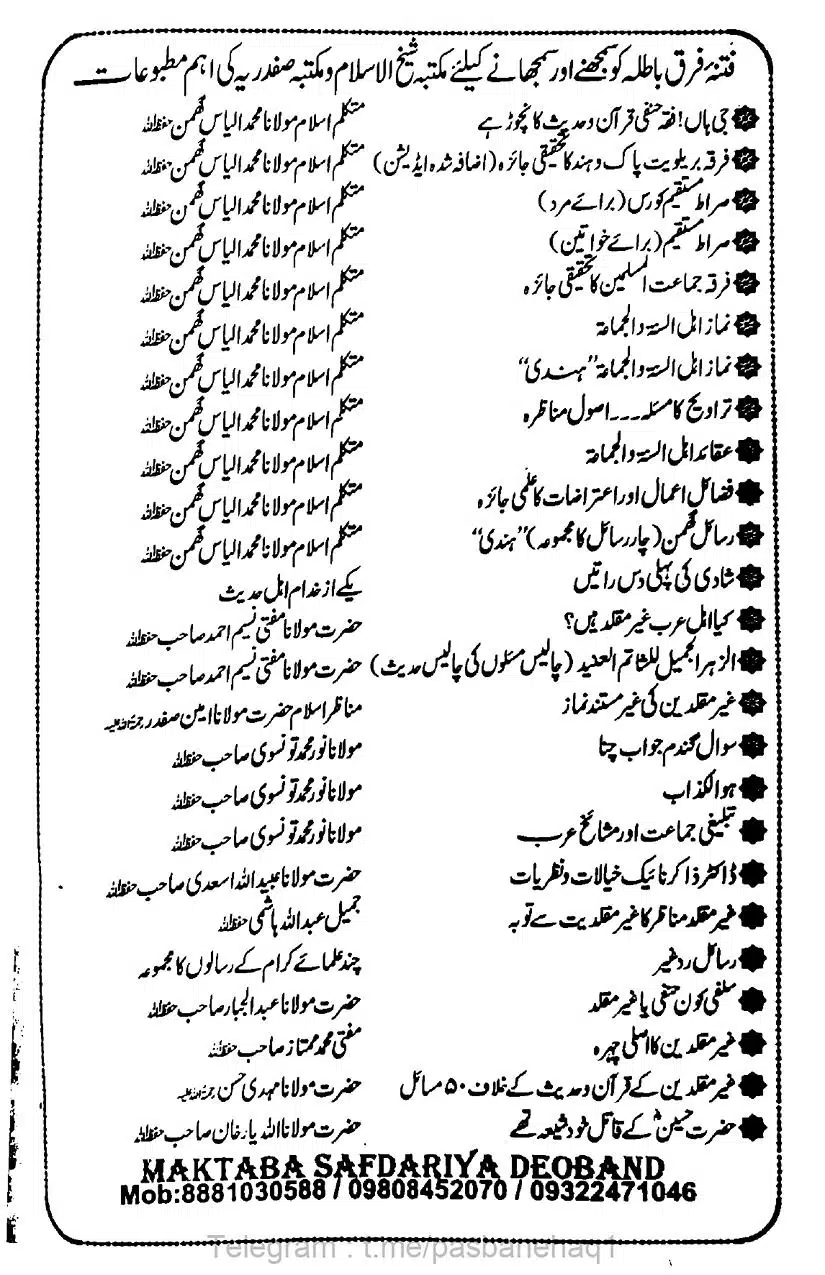 فتنۂ فرق باطلہ کو سمجھنے اور سمجھانے کیلئے مکتبہ شیخ الاسلام و مکتبہ صفدریہ کی اہم مطبوعات
جی ہاں! فقہ حنفی قرآن و حدیث کا نچوڑ ہے متکلم اسلام مولانا محمد الیاس گھمن حفظہ اللہ
فرقہ بریلویت پاک و ہند کا تحقیقی جائزہ (اضافہ شدہ ایڈیشن) متکلم اسلام مولانا محمد الیاس گھمن حفظہ اللہ
صراط مستقیم کورس (برائے مرد) متکلم اسلام مولانا محمد الیاس گھمن حفظہ اللہ
صراط مستقیم (برائے خواتین) متکلم اسلام مولانا محمد الیاس گھمن حفظہ اللہ
فرقہ جماعت المسلمین کا تحقیقی جائزہ متکلم اسلام مولانا محمد الیاس گھمن حفظہ اللہ
نماز اہل السنۃ والجماعۃ متکلم اسلام مولانا محمد الیاس گھمن حفظہ اللہ
نماز اہل السنۃ والجماعۃ "ہندی" متکلم اسلام مولانا محمد الیاس گھمن حفظہ اللہ
تراویح کا مسئلہ۔۔۔ اصول مناظرہ متکلم اسلام مولانا محمد الیاس گھمن حفظہ اللہ
عقائد اہل السنۃ والجماعۃ متکلم اسلام مولانا محمد الیاس گھمن حفظہ اللہ
فضائل اعمال اور اعتراضات کا علمی جائزہ متکلم اسلام مولانا محمد الیاس گھمن حفظہ اللہ
رسائل گھمن (چار رسائل کا مجموعہ) "ہندی" متکلم اسلام مولانا محمد الیاس گھمن حفظہ اللہ
شادی کی پہلی دس راتیں یکے از خدام اہل حدیث
کیا اہل عرب غیر مقلد ہیں؟ حضرت مولانا مفتی نسیم احمد صاحب حفظہ اللہ
الزہر الجمیل للشاتم العنید (چالیس مسئلوں کی چالیس حدیث) حضرت مولانا مفتی نسیم احمد صاحب حفظہ اللہ
غیر مقلدین کی غیر مستند نماز مناظر اسلام حضرت مولانا امین صفدر رحمۃ اللہ علیہ
سوال گندم جواب چنا مولانا نور محمد تونسوی صاحب حفظہ اللہ
ہوالکذاب مولانا نور محمد تونسوی صاحب حفظہ اللہ
تبلیغی جماعت اور مشائخ عرب مولانا نور محمد تونسوی صاحب حفظہ اللہ
ڈاکٹر ذاکر نائیک خیالات و نظریات حضرت مولانا عبید اللہ اسعدی صاحب حفظہ اللہ
غیر مقلد مناظر کا غیر مقلدیت سے توبہ جمیل عبد اللہ ہاشمی حفظہ اللہ
رسائل رد غیر چند علمائے کرام کے رسالوں کا مجموعہ
سلفی کون حنفی یا غیر مقلد حضرت مولانا عبد الجبار صاحب حفظہ اللہ
غیر مقلدین کا اصلی چہرہ مفتی محمد ممتاز صاحب حفظہ اللہ
غیر مقلدین کے قرآن و حدیث کے خلاف ۵۰ مسائل حضرت مولانا مہدی حسن رحمۃ اللہ علیہ
حضرت حسینؓ کے قاتل خود شیعہ تھے حضرت مولانا اللہ یار خان صاحب حفظہ اللہ
MAKTABA SAFDARIYA DEOBAND
Mob:8881030588 / 09808452070 / 09322471046
Telegram : t.me/pasbanehaq1